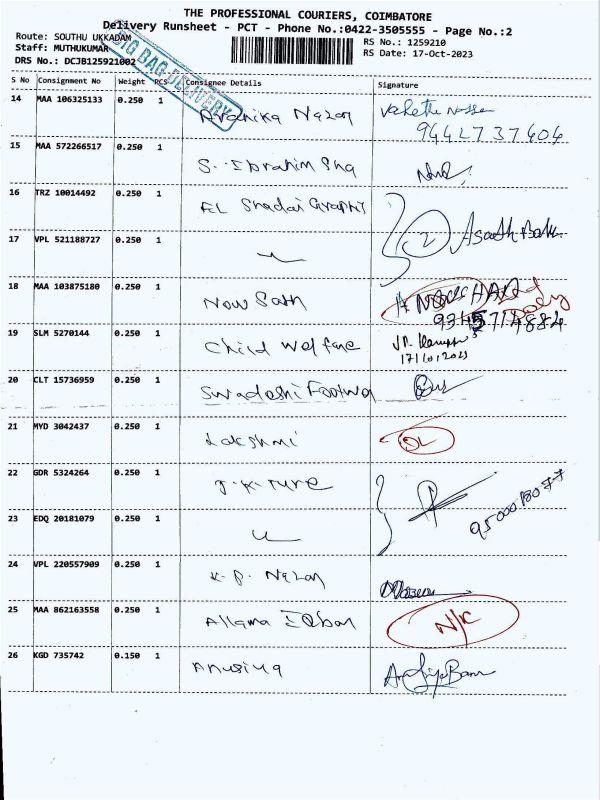 THE PROFESSIONAL COURIERS, COIMBATORE
Delivery Runsheet - PCT - Phone No.:0422-3505555 - Page No.:2
Route: SOUTHU UKKADAM
RS No.: 1259210
Staff: MUTHUKUMAR
RS Date: 17-Oct-2023
DRS No.: DCJB125921002
BIG BAG DELIVERY
S No Consignment No Weight PCS Consignee Details Signature
14 MAA 106325133 0.250 1
9442737604
15 MAA 572266517 0.250 1 S. Ibrahim Sha
16 TRZ 10014492 0.250 1 EL Shadai Graphi
2
17 VPL 521188727 0.250 1
18 MAA 103875180 0.250 1 Now Sath
19 SLM 5270144 0.250 1 Child Welfare
17/10/2023
20 CLT 15736959 0.250 1 Swadeshi Footwa
21 MYD 3042437 0.250 1 Lakshmi DL
22 GDR 5324264 0.250 1 J.K. Tyre
23 EDQ 20181079 0.250 1
24 VPL 220557909 0.250 1
25 MAA 862163558 0.250 1 Allama Iqbal N/C
26 KGD 735742 0.150 1 Anusiya